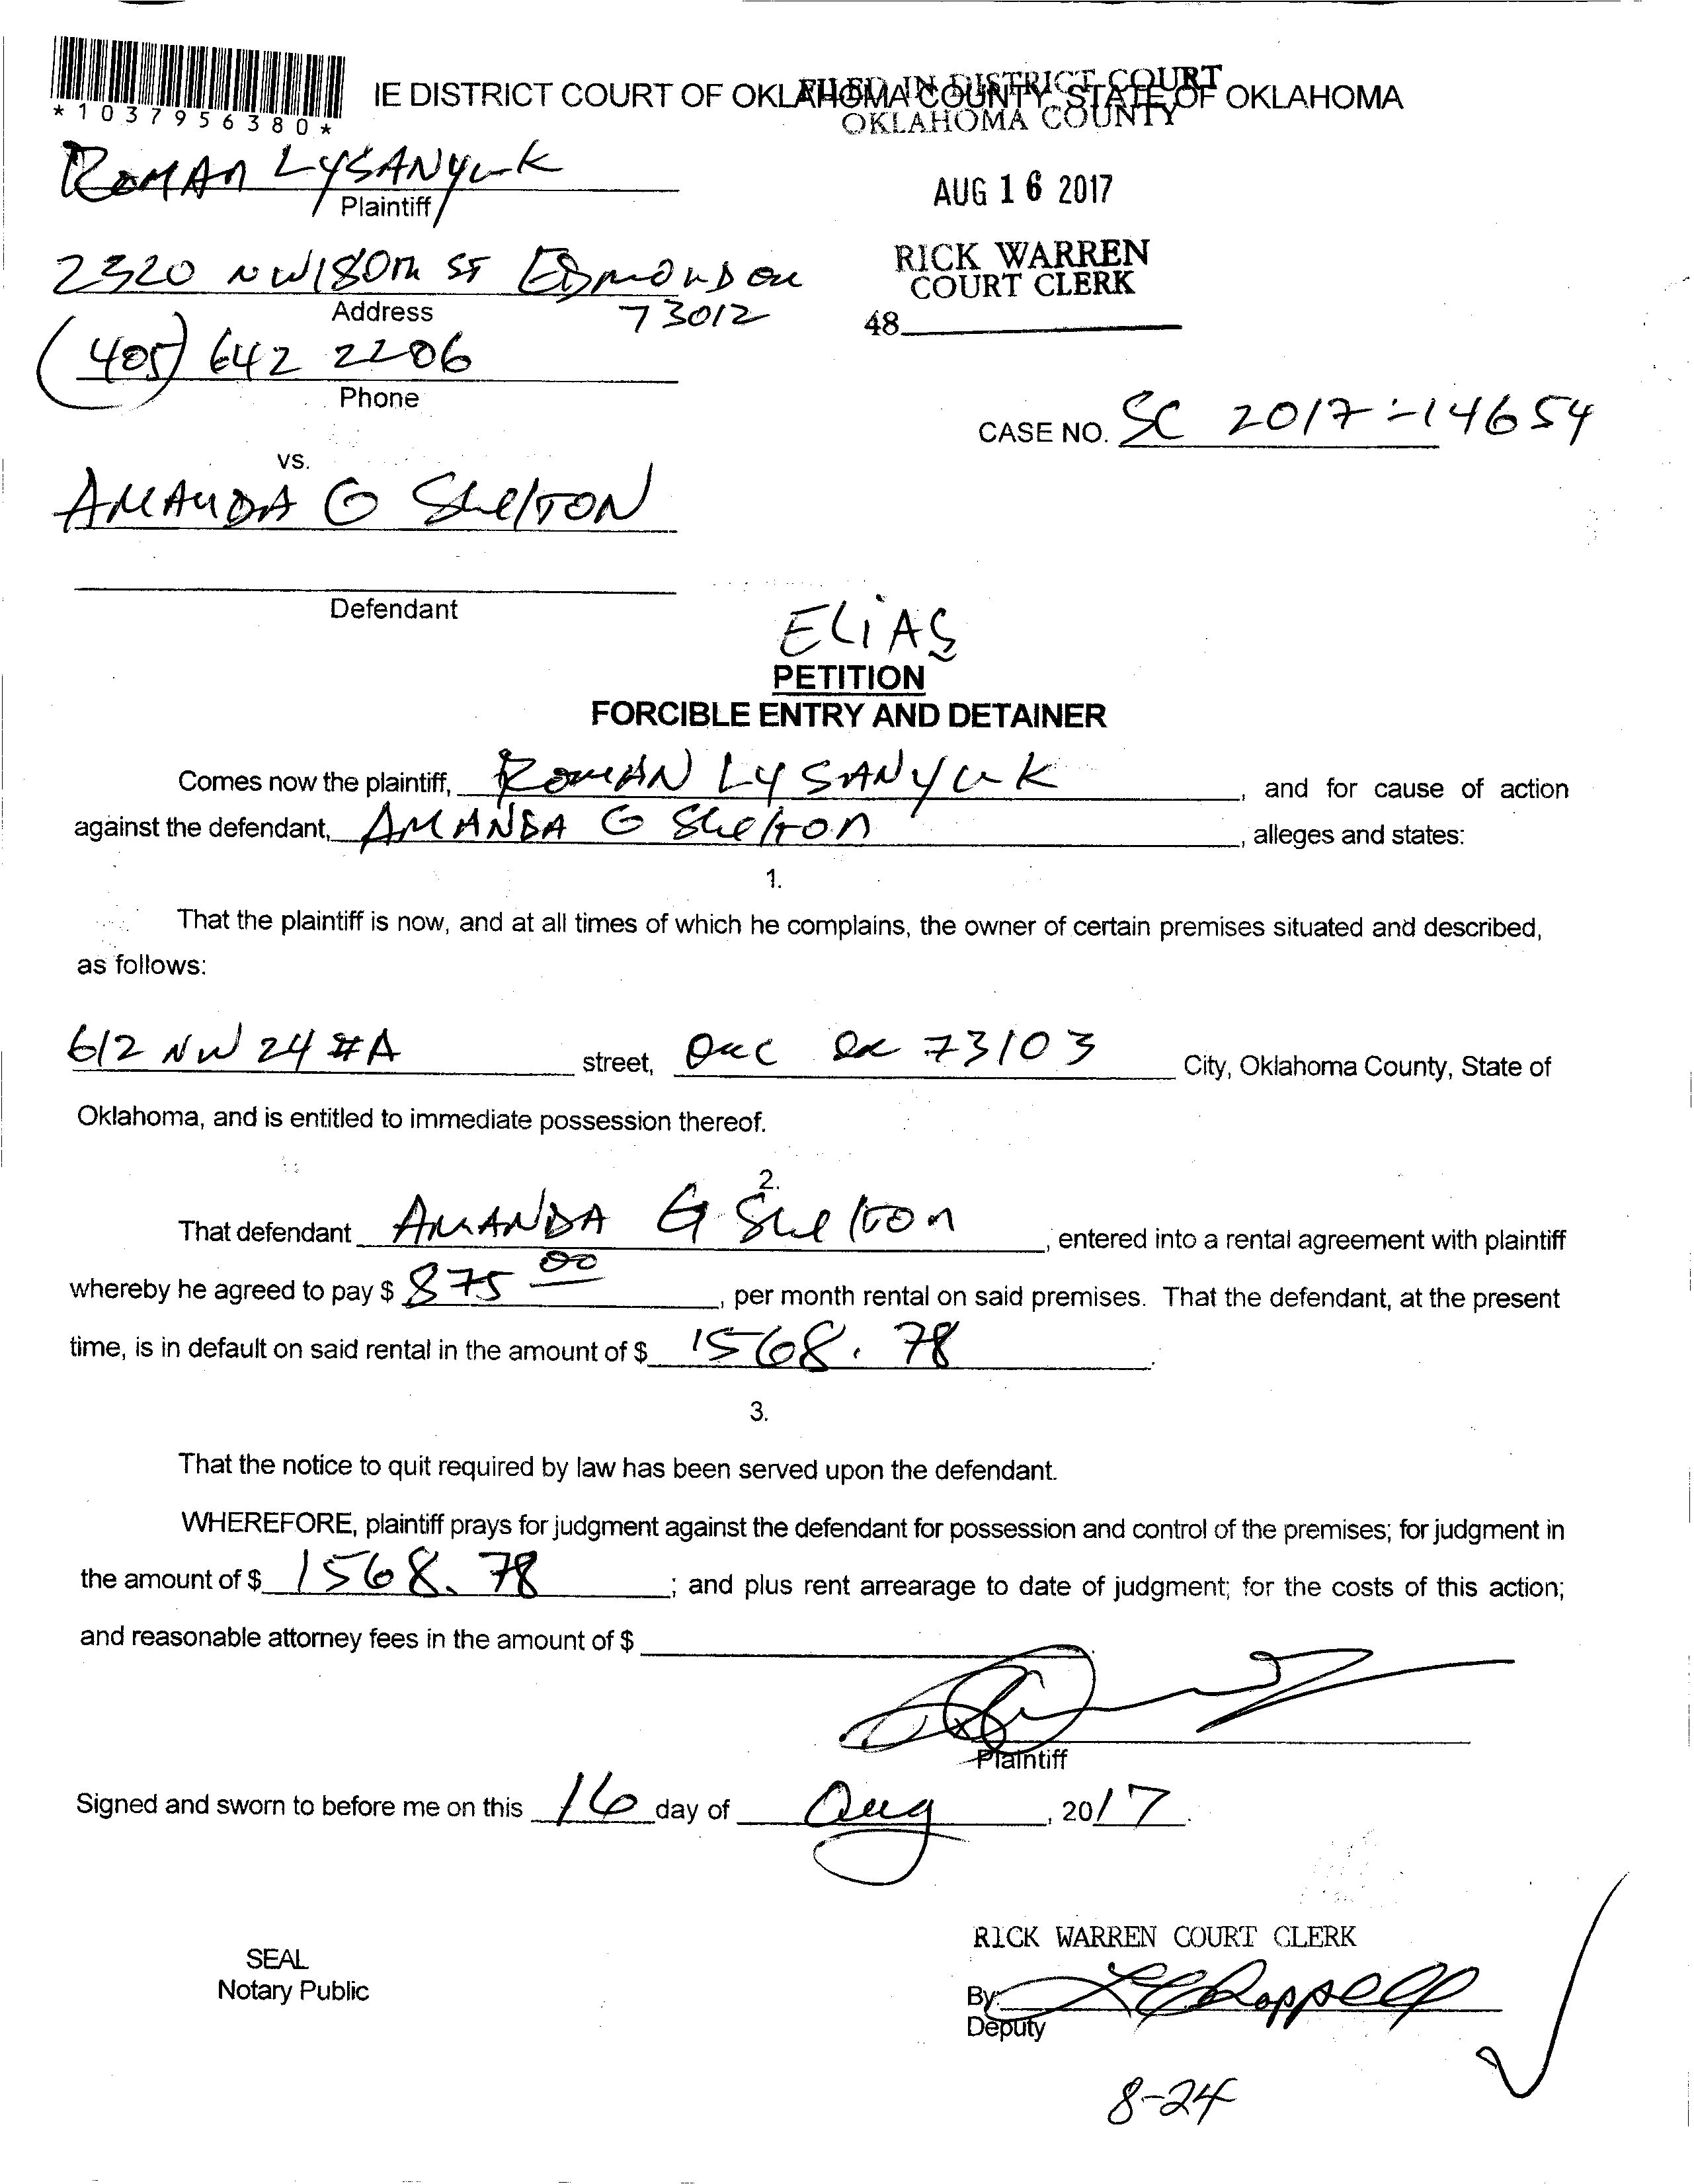 IE DISTRICT COURT OF OKLAHOMA COUNTY, STATE OF OKLAHOMA
FILED IN DISTRICT COURT
OKLAHOMA COUNTY
*1037956380*
ROMAN LYSANYUK
Plaintiff
AUG 16 2017
2320 NW 180TH ST EDMOND OK
73012
Address
RICK WARREN
COURT CLERK
48
(405) 642 2206
Phone
CASE NO. SC 2017-14654
vs.
AMANDA G SHELTON
Defendant
ELIAS
PETITION
FORCIBLE ENTRY AND DETAINER
Comes now the plaintiff, ROMAN LYSANYUK, and for cause of action
against the defendant, AMANDA G SHELTON, alleges and states:
1.
That the plaintiff is now, and at all times of which he complains, the owner of certain premises situated and described,
as follows:
612 NW 24 #A street, OKC OK 73103 City, Oklahoma County, State of
Oklahoma, and is entitled to immediate possession thereof.
2.
That defendant AMANDA G Shelton, entered into a rental agreement with plaintiff
whereby he agreed to pay $ 875 00, per month rental on said premises. That the defendant, at the present
time, is in default on said rental in the amount of $ 1568.78.
3.
That the notice to quit required by law has been served upon the defendant.
WHEREFORE, plaintiff prays for judgment against the defendant for possession and control of the premises; for judgment in
the amount of $ 1568.78; and plus rent arrearage to date of judgment; for the costs of this action;
and reasonable attorney fees in the amount of $
X
Plaintiff
Signed and sworn to before me on this 16 day of Aug, 2017.
RICK WARREN COURT CLERK
SEAL
Notary Public
By:
Deputy
8-24